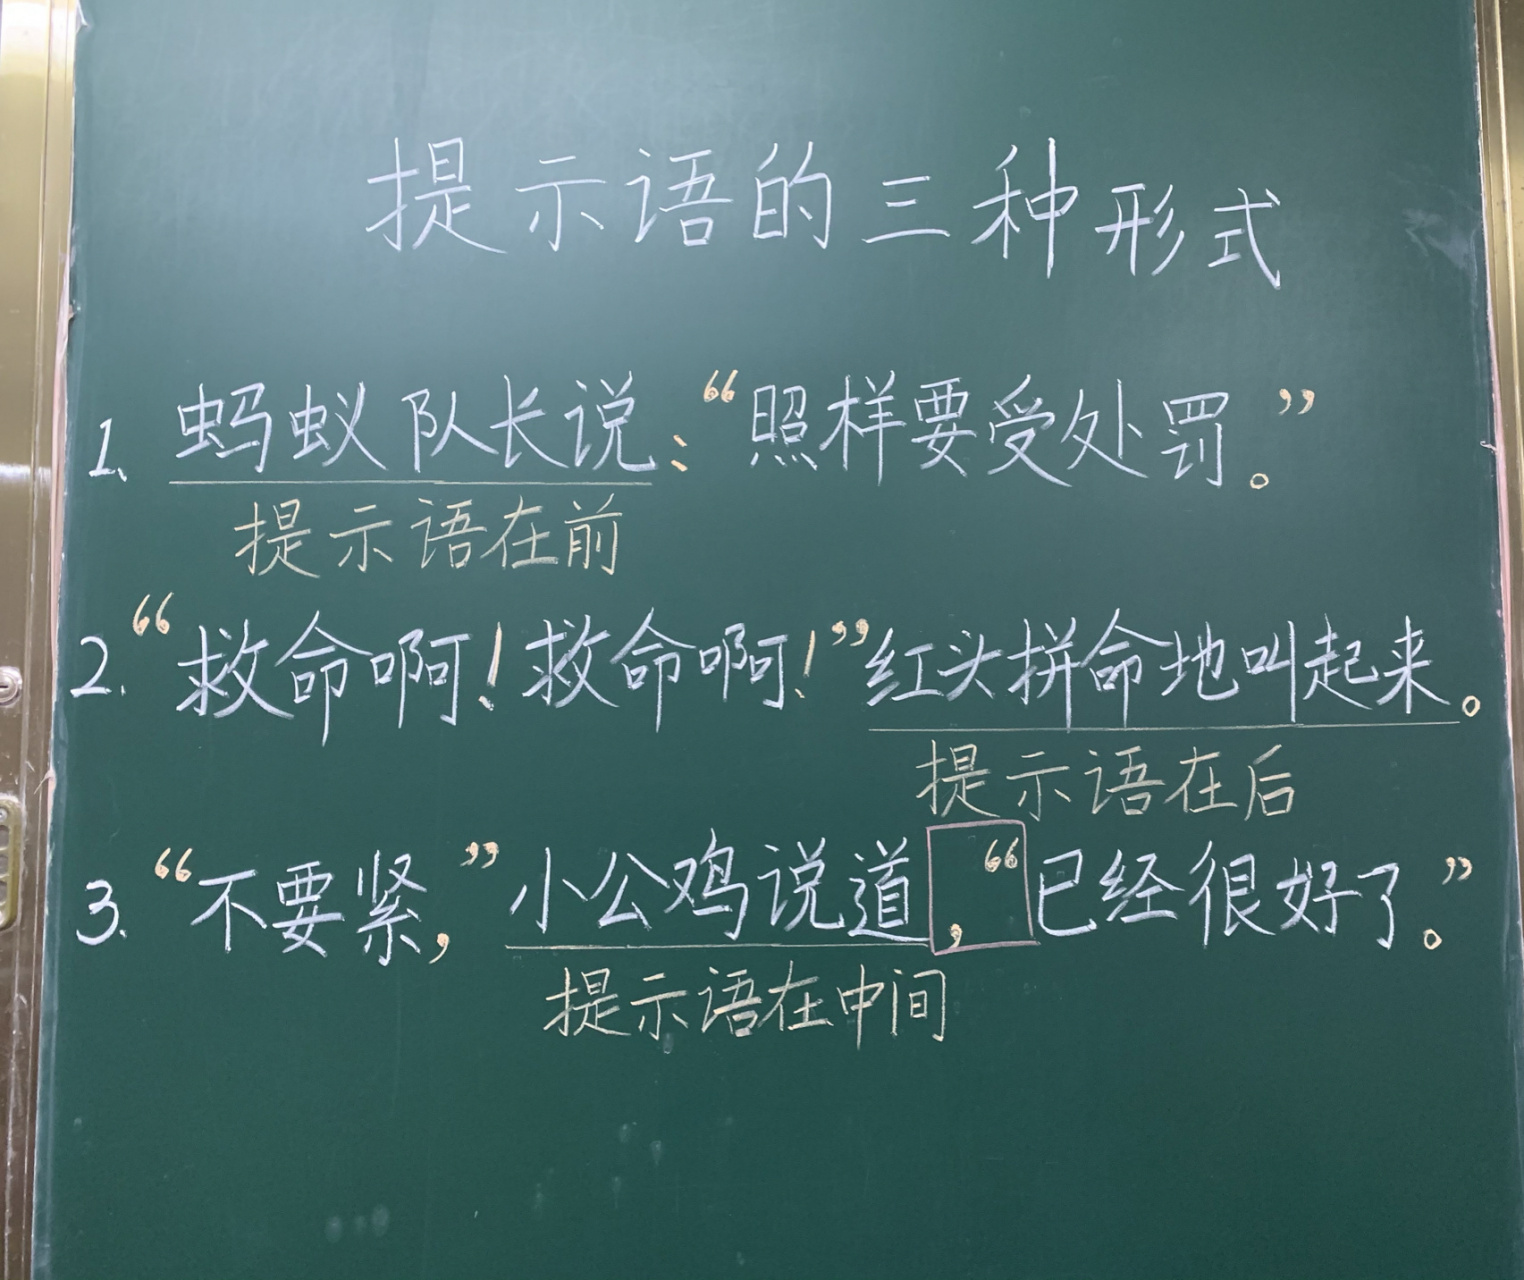 提示语的三种形式
1、蚂蚁队长说：“照样要受处罚。”
提示语在前
2.“救命啊！救命啊！”红头拼命地叫起来。
提示语在后
3.“不要紧，”小公鸡说道，“已经很好了。”
提示语在中间